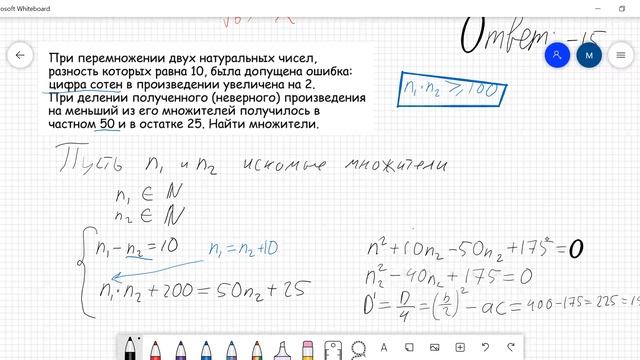 osoft Whiteboard
Ответ: -15
При перемножении двух натуральных чисел,
разность которых равна 10, была допущена ошибка:
цифра сотен в произведении увеличена на 2.
При делении полученного (неверного) произведения
на меньший из его множителей получилось в
частном 50 и в остатке 25. Найти множители.
n₁·n₂ ⩾ 100
M
Пусть n₁ и n₂ искомые множители
n₁ ∈ N
n₂ ∈ N
n₁ - n₂ = 10 n₁ = n₂ + 10
n₁·n₂ + 200 = 50n₂ + 25
n² + 10n₂ - 50n₂ + 175 = 0
n₂² - 40n₂ + 175 = 0
D' = D/4 = (b/2)² - ac = 400 - 175 = 225 = 1